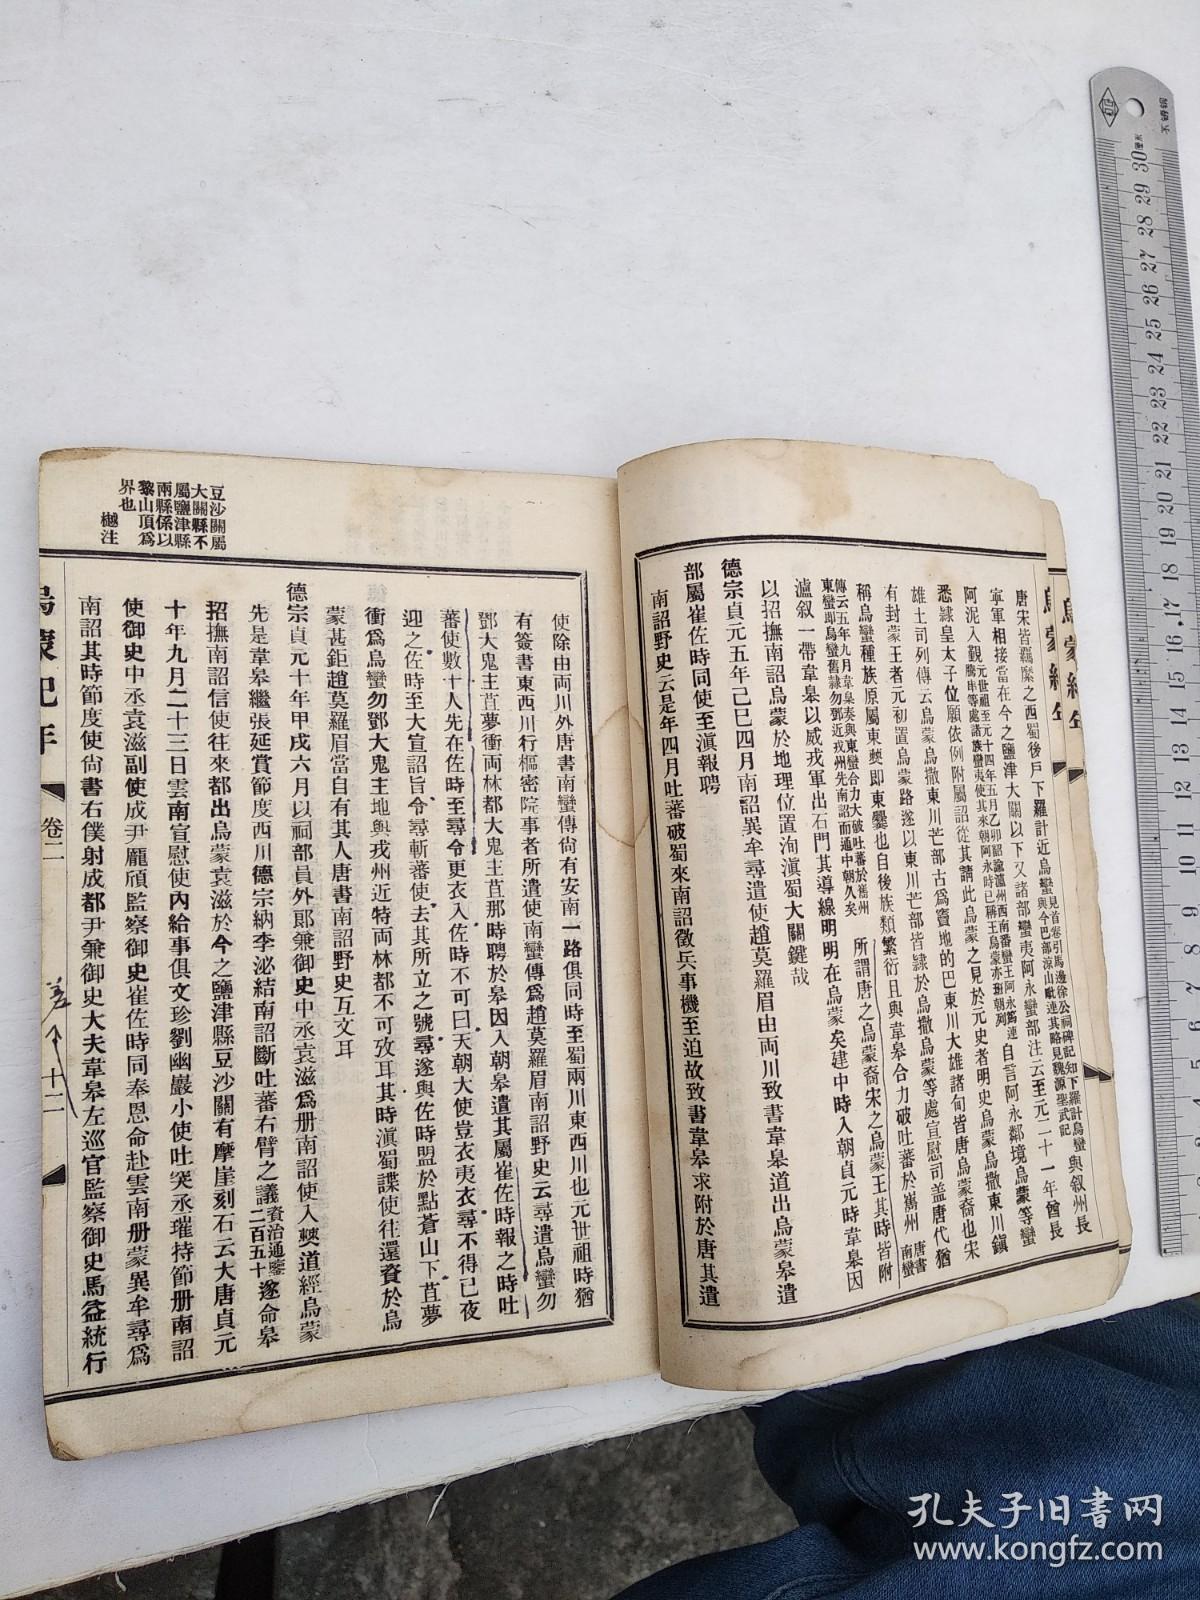 烏蒙紀年
唐宋皆羈縻之西蜀後戶下羅計近烏蠻見首卷引馬邊徐公祠碑記知下羅計烏蠻與敘州長
寧軍相接當在今之鹽津大關以下又諸部蠻夷阿永蠻部注云至元二十一年酋長
阿泥入覲自言阿永鄰境烏蒙等蠻
悉隸皇太子位願依例附屬詔從其請此烏蒙之見於元史者明史烏蒙烏撒東川鎮
雄土司列傳云烏蒙烏撒東川芒部古爲竇地的巴東川大雄諸甸皆唐烏蒙裔也宋
有封蒙王者元初置烏蒙路遂以東川芒部皆隸於烏撒烏蒙等處宣慰司盖唐代猶
稱烏蠻種族原屬東爨即東爨也自後族類繁衍且與韋皋合力破吐蕃於嶲州唐書南蠻
傳云五年九月韋臯奏與東蠻合力大破吐蕃於嶲州
東蠻即烏蠻舊隸勿鄧近戎州先南詔而通中朝久矣
所謂唐之烏蒙裔宋之烏蒙王其時皆附
瀘敘一帶韋皋以威戎軍出石門其導線明明在烏蒙矣建中時入朝貞元時韋皋因
以招撫南詔烏蒙於地理位置洵滇蜀大關鍵哉
德宗貞元五年己巳四月南詔異牟尋遣使趙莫羅眉由兩川致書韋皋道出烏蒙皋遣
部屬崔佐時同使至滇報聘
南詔野史云是年四月吐蕃破蜀來南詔徵兵事機至迫故致書韋皋求附於唐其遣
使除由両川外唐書南蠻傳尙有安南一路俱同時至蜀兩川東西川也元世祖時猶
有簽書東西川行樞密院事者所遣使南蠻傳爲趙莫羅眉南詔野史云尋遣烏蠻勿
鄧大鬼主苴夢衝両林都大鬼主苴那時聘於皋因入朝皋遣其屬崔佐時報之時吐
蕃使數十人先在佐時至尋令更衣入佐時不可曰天朝大使豈衣夷衣尋不得已夜
迎之佐時至大宣詔旨令尋斬蕃使去其所立之號尋遂與佐時盟於點蒼山下苴夢
衝爲烏蠻勿鄧大鬼主地與戎州近特両林都不可攷耳其時滇蜀諜使往還資於烏
蒙甚鉅趙莫羅眉當自有其人唐書南詔野史互文耳
德宗貞元十年甲戌六月以祠部員外郞兼御史中丞袁滋爲册南詔使入爨道經烏蒙
先是韋皋繼張延賞節度西川德宗納李泌結南詔斷吐蕃右臂之議資治通鑑二百五十遂命皋
招撫南詔信使往來都出烏蒙袁滋於今之鹽津縣豆沙關有摩崖刻石云大唐貞元
十年九月二十三日雲南宣慰使內給事俱文珍劉幽巖小使吐突丞璀持節册南詔
使御史中丞袁滋副使成尹龐頎監察御史崔佐時同奉恩命赴雲南册蒙異牟尋爲
南詔其時節度使尙書右僕射成都尹兼御史大夫韋皋左巡官監察御史馬益統行
豆沙關屬
大關縣不
屬鹽津縣
兩縣係以
黎山頂爲
界也
樾注
烏蒙紀年
卷二
十二
孔夫子旧書网
www.kongfz.com